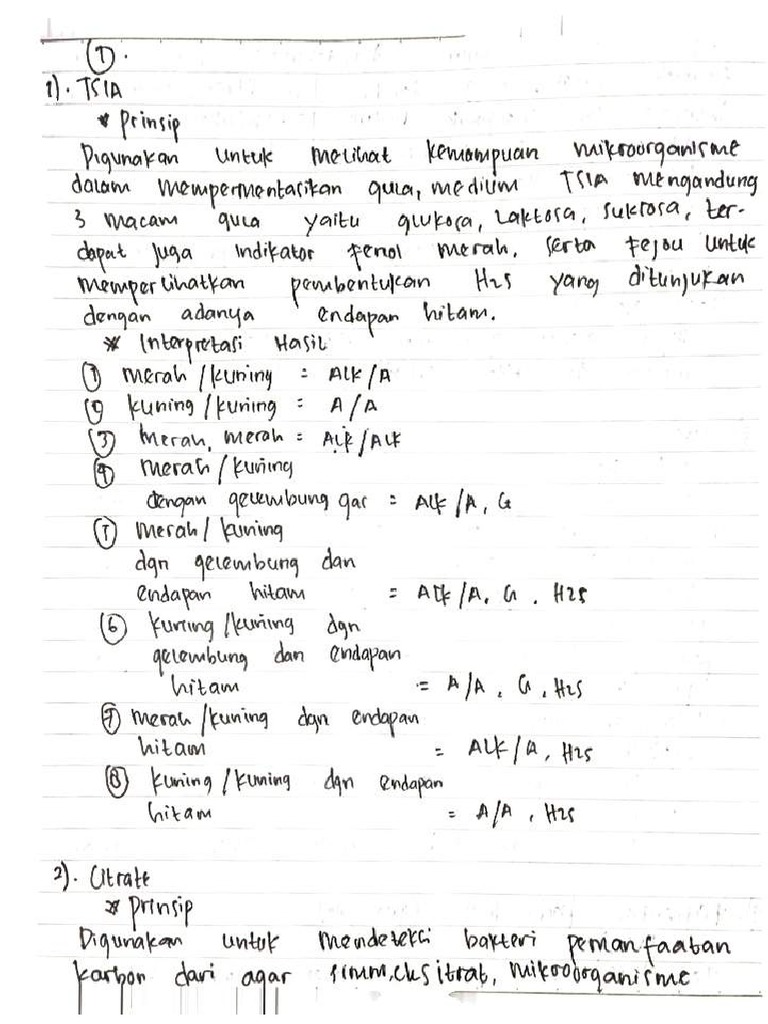 ①.
1). TSIA
* Prinsip
Digunakan untuk melihat kemampuan mikroorganisme
dalam mempermentasikan gula, medium TSIA mengandung
3 macam gula yaitu glukosa, Laktosa, sukrosa, ter-
dapat juga indikator fenol merah, serta FeSO4 untuk
memperlihatkan pembentukan H2S yang ditunjukan
dengan adanya endapan hitam.
* Interpretasi Hasil
① merah / kuning = Alk/A
② kuning / kuning = A/A
③ Merah, merah = Alk/Alk
④ merah / kuning
dengan gelembung gas = Alk/A, G
⑤ merah / kuning
dgn gelembung dan
endapan hitam = Alk/A, G, H2S
⑥ kuning / kuning dgn
gelembung dan endapan
hitam = A/A, G, H2S
⑦ merah / kuning dgn endapan
hitam = Alk/A, H2S
⑧ kuning / kuning dgn endapan
hitam = A/A, H2S
2). Citrate
* prinsip
Digunakan untuk mendeteksi bakteri pemanfaatan
karbon dari agar mikroorganisme